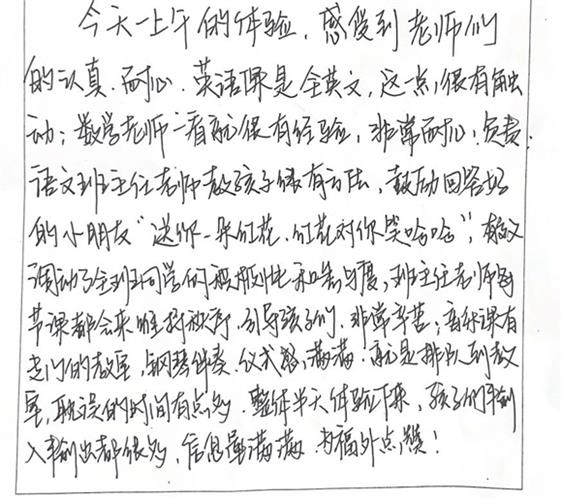 今天一上午的体验，感受到老师们
的认真、耐心。英语课是全英文，这一点很有触
动；数学老师一看就很有经验，非常耐心、负责
语文班主任老师教孩子很有方法，鼓励回答好
的小朋友"送你一朵红花，红花对你笑哈哈"，有效又
调动了全班同学的积极性和专注度，班主任老师每
节课都会来维持秩序，引导孩子们，非常辛苦；音乐课有
专门的教室，钢琴伴奏，仪式感满满，就是排队到教
室，耽误的时间有点多。整体半天体验下来，孩子们输
入输出都很多，信息量满满，为福外点赞！